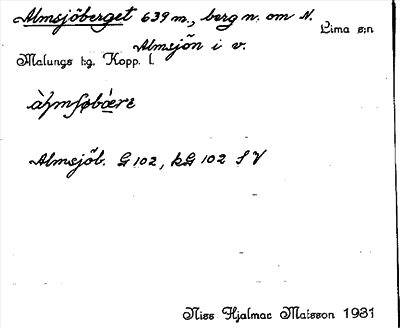 Almsjöberget 639 m., berg n. om N.
Lima s:n
Almsjön i v.
Malungs tg. Kopp. l.
Almsjöb. G 102, kG 102 S V
Niss Hjalmar Matsson 1931